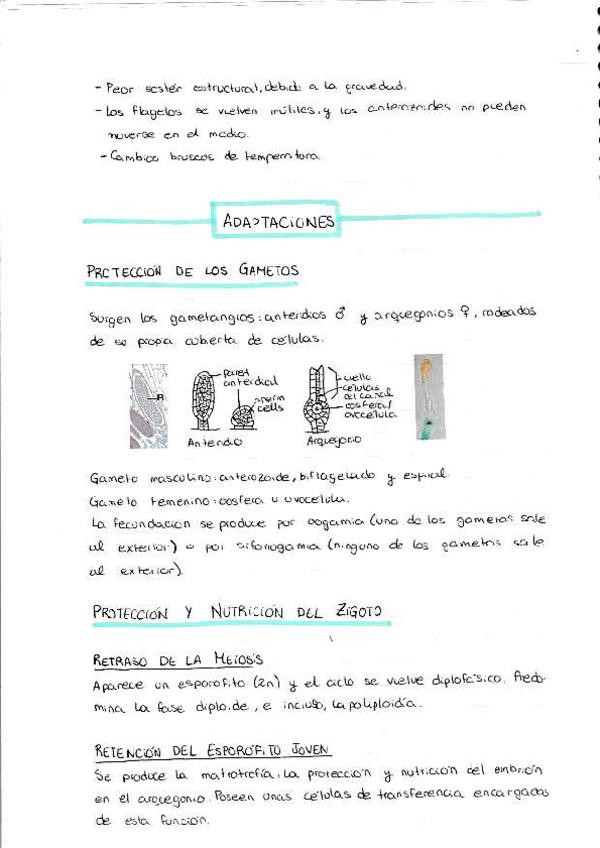 - Peor sostén estructural, debido a la gravedad.
- Los flagelos se vuelven inútiles, y los anterozoides no pueden
moverse en el medio.
- Cambios bruscos de temperatura.
ADAPTACIONES
PROTECCIÓN DE LOS GAMETOS
Surgen los gametangios: anteridios ♂ y arquegonios ♀, rodeados
de su propia cubierta de células.
pared
anteridial
sperm
cells
Anteridio
cuello
células
del canal
oosfera/
ovocélula
Arquegonio
Gameto masculino: anterozoide, biflagelado y espiral.
Gameto femenino: oosfera u ovocélula.
La fecundación se produce por oogamia (uno de los gametos sale
al exterior) o por sifonogamia (ninguno de los gametos sale
al exterior).
PROTECCIÓN Y NUTRICIÓN DEL ZIGOTO
RETRASO DE LA MEIOSIS
Aparece un esporofito (2n) y el ciclo se vuelve diplofásico. Predo-
mina la fase diploide, e incluso, la poliploidía.
RETENCIÓN DEL ESPORÓFITO JOVEN
Se produce la matrotrofia, la protección y nutrición del embrión
en el arquegonio. Poseen unas células de transferencia encargadas
de esta función.